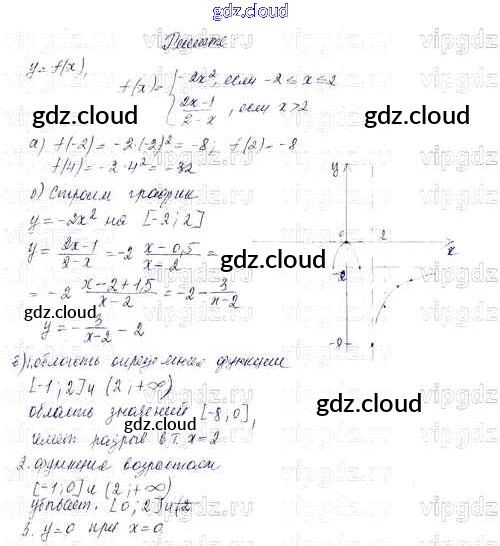 gdz.cloud
Решите
y = f(x),
f(x) = { -2x², если -2 ≤ x ≤ 2
{ (2x-1)/(2-x), если x > 2
gdz.cloud
gdz.cloud
а) f(-2) = -2·(-2)² = -8; f(2) = -8
f(4) = -2·4² = -32
б) Строим график
y = -2x² на [-2; 2]
y = (2x-1)/(2-x) = -2 (x-0,5)/(x-2) =
= -2 (x-2+1,5)/(x-2) = -2 - 3/(x-2)
y = -3/(x-2) - 2
y
0
2
x
-2
-8
gdz.cloud
gdz.cloud
в) 1. область определения функции
[-1; 2] и (2; +∞)
область значений [-8, 0],
имеет разрыв в т. x = 2
gdz.cloud
2. функция возрастает
[-1; 0] и (2; +∞)
убывает [0; 2]
3. y = 0 при x = 0
gdz.cloud